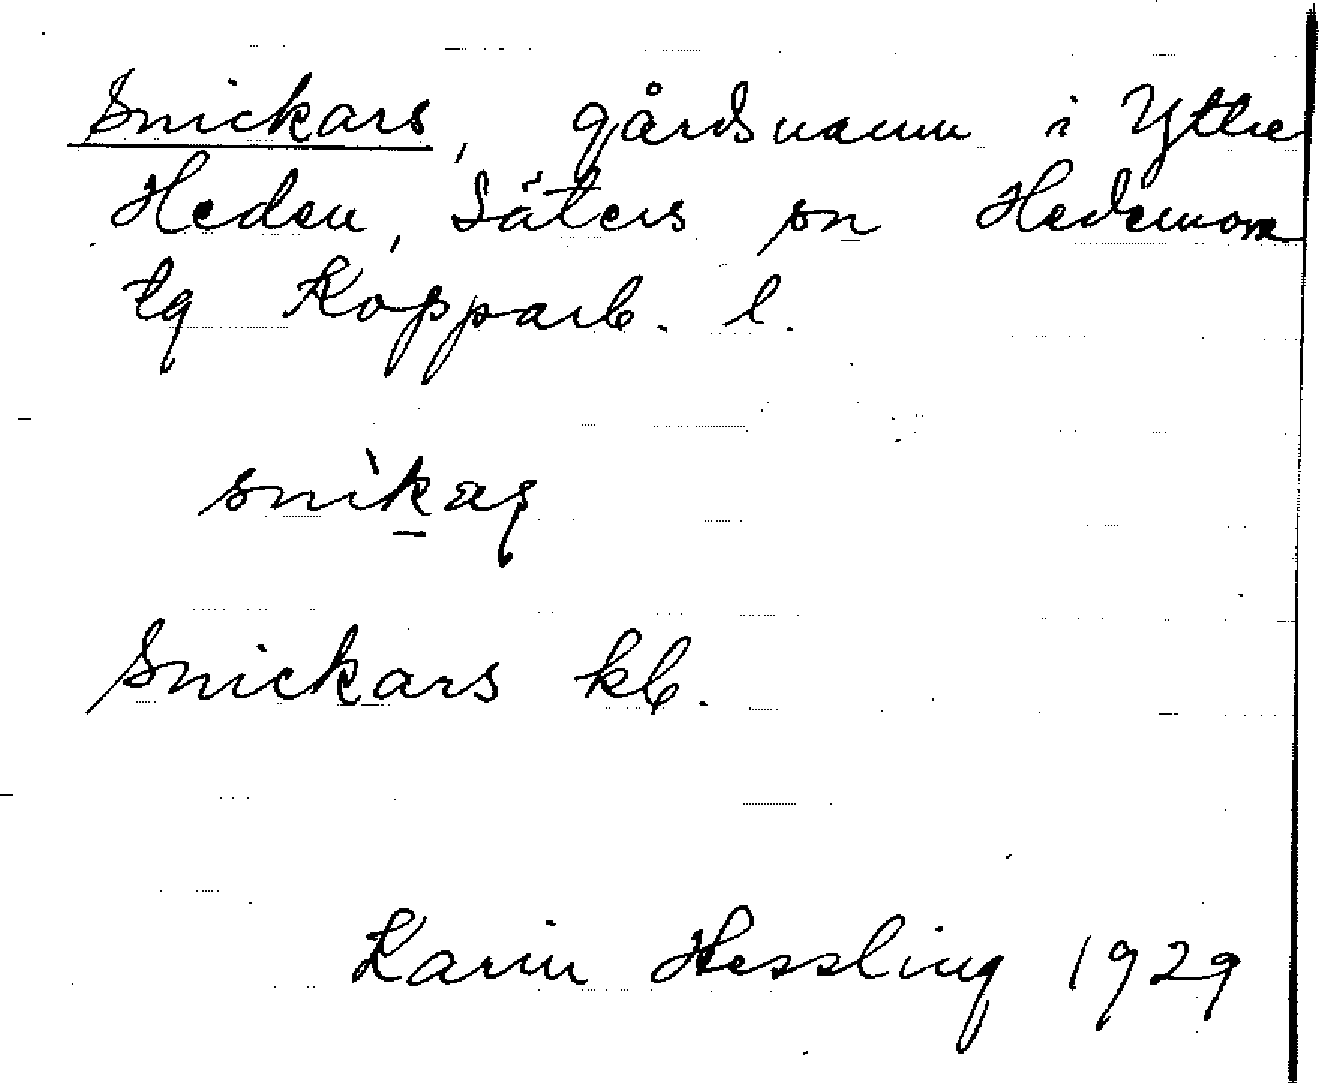 Snickars, gårdsnamn i Yttre
Heden, Säters sn Hedemora
tg Kopparb. l.
snìk̠aʂ
Snickars kb.
Karin Hessling 1929